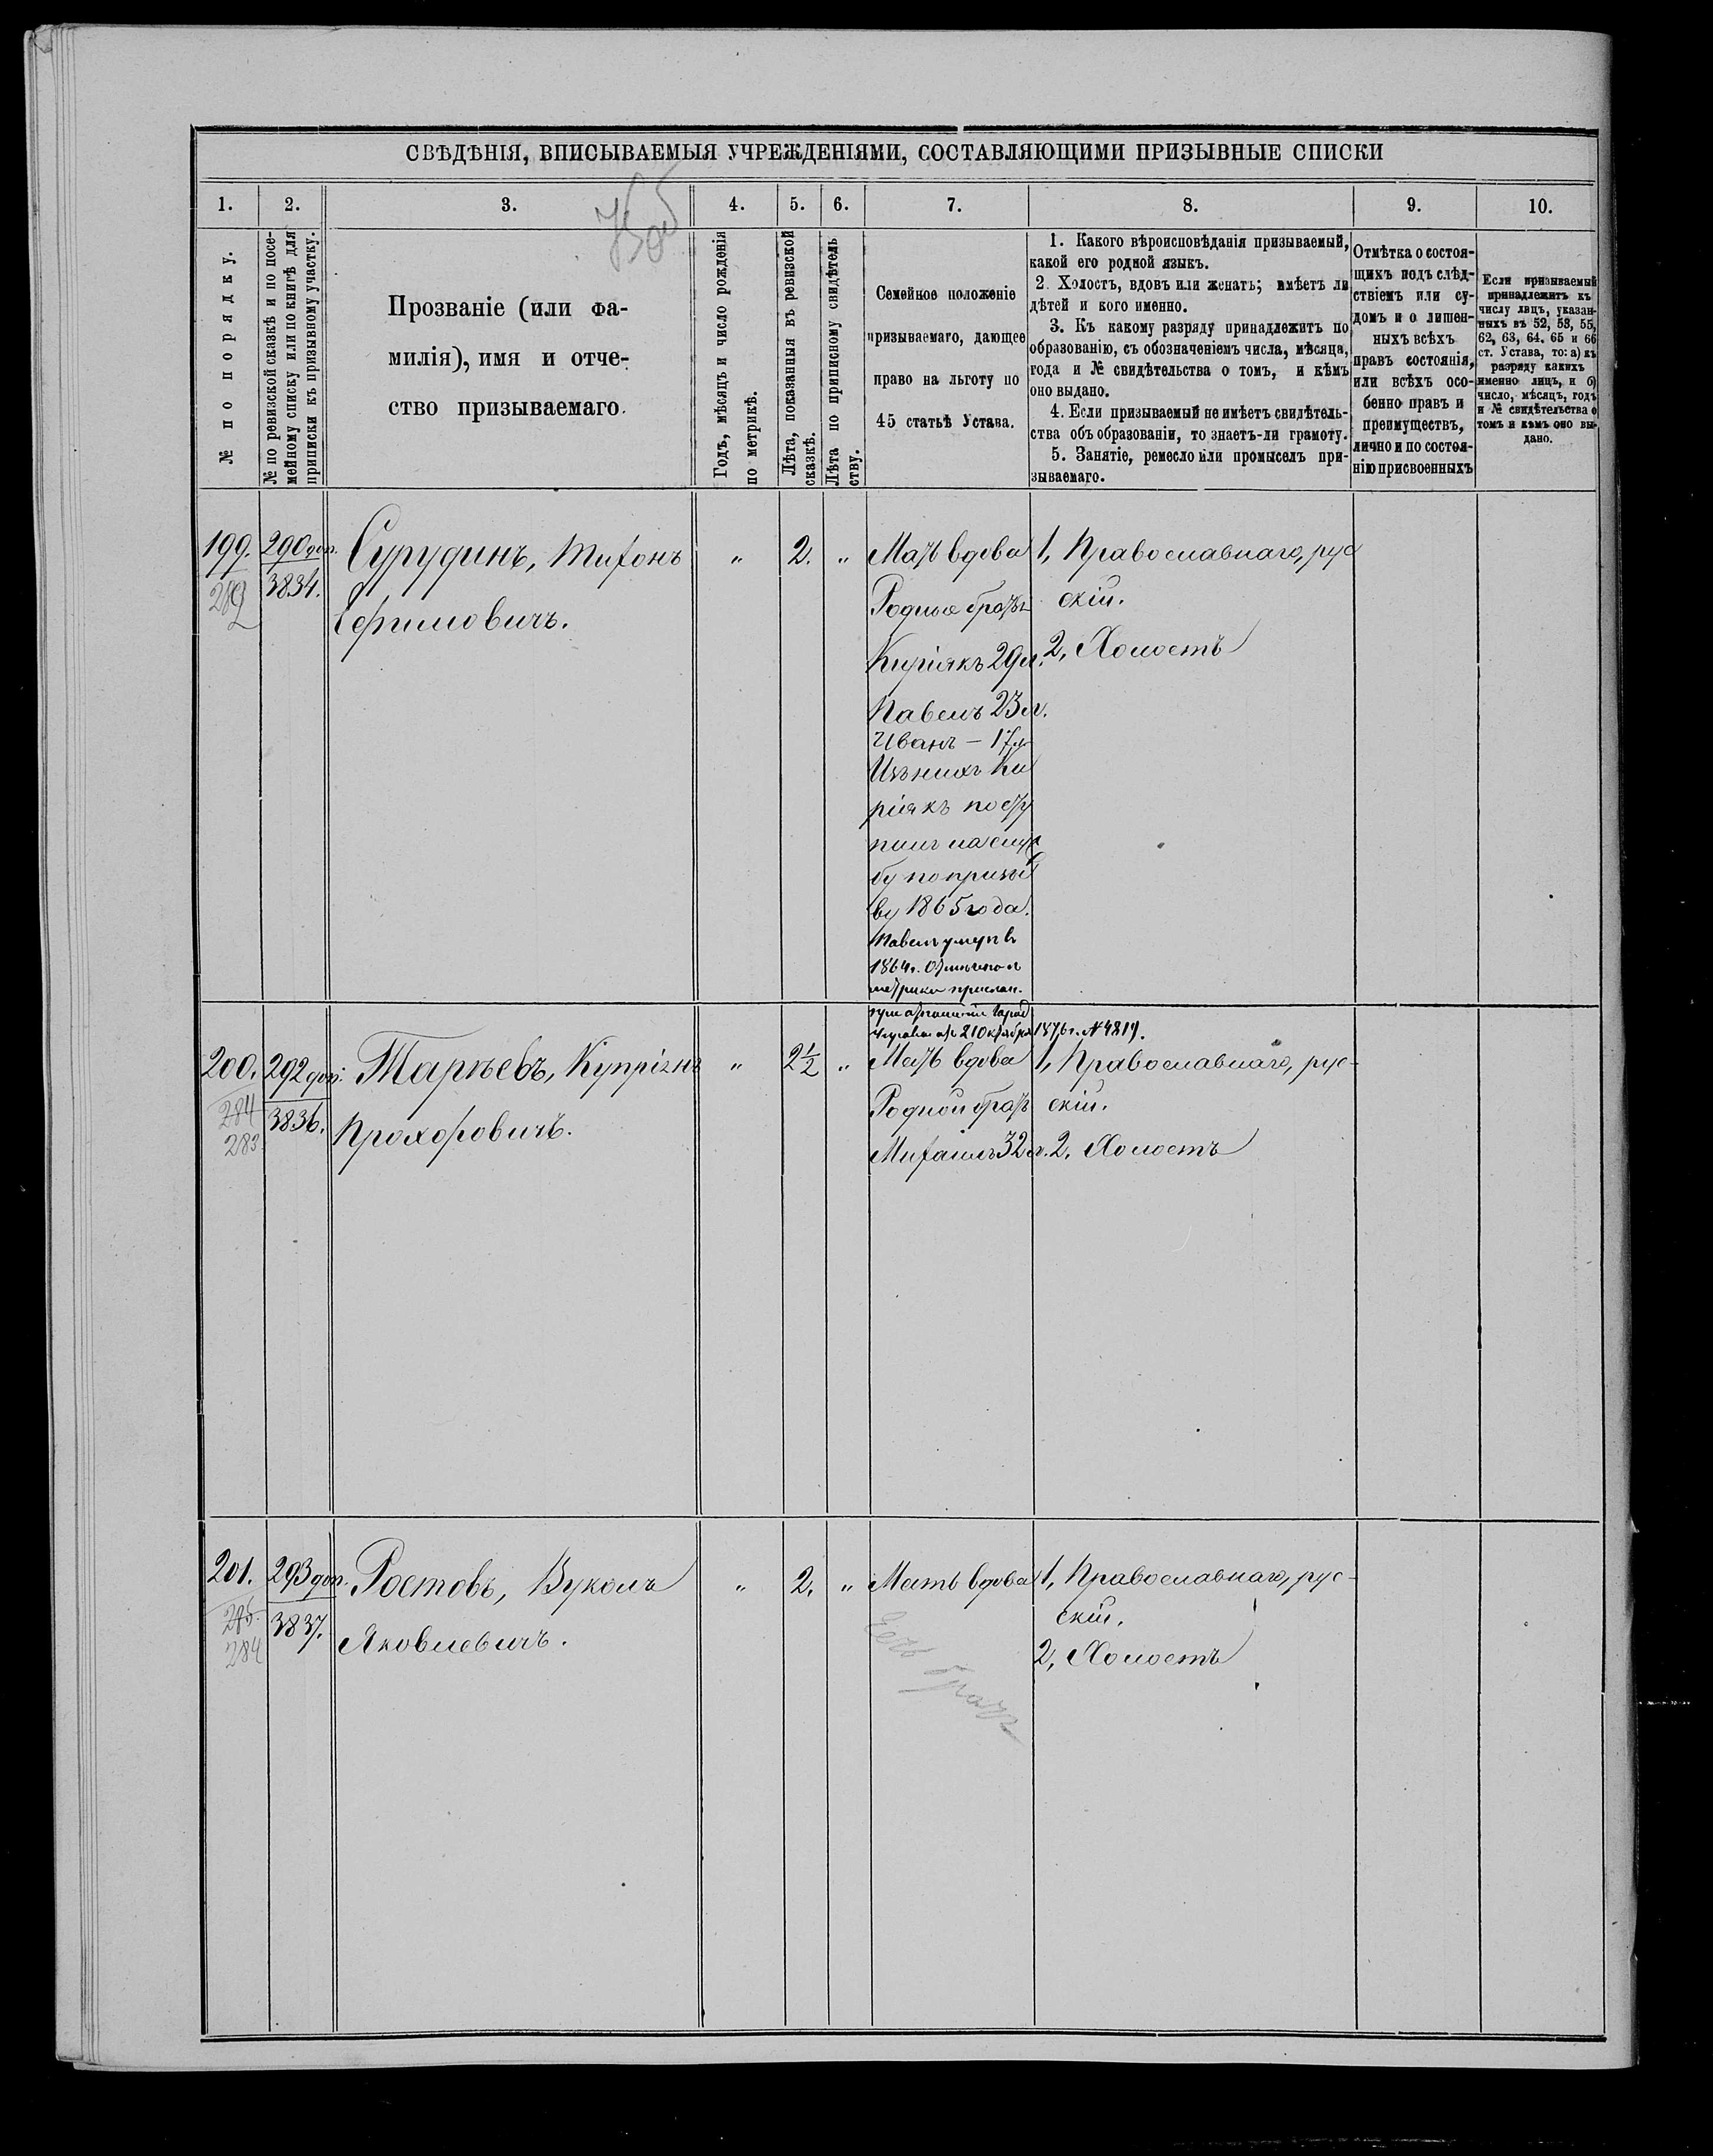 СВѢДѢНІЯ, ВПИСЫВАЕМЫЯ УЧРЕЖДЕНІЯМИ, СОСТАВЛЯЮЩИМИ ПРИЗЫВНЫЕ СПИСКИ
1.
2.
3.
4.
5.
6.
7.
8.
9.
10.
№ по порядку.
№ по ревизской сказкѣ и по посе-
мейному списку или по книгѣ для
приписки къ призывному участку.
Прозваніе (или фа-
милія), имя и отче-
ство призываемаго.
Годъ, мѣсяцъ и число рожденія
по метрикѣ.
Лѣта, показанныя въ ревизской
сказкѣ.
Лѣта по приписному свидѣтель
ству.
Семейное положеніе
призываемаго, дающее
право на льготу по
45 статьѣ Устава.
1. Какого вѣроисповѣданія призываемый,
какой его родной языкъ.
2. Холостъ, вдовъ или женатъ; имѣетъ ли
дѣтей и кого именно.
3. Къ какому разряду принадлежитъ по
образованію, съ обозначеніемъ числа, мѣсяца,
года и № свидѣтельства о томъ, и кѣмъ
оно выдано.
4. Если призываемый не имѣетъ свидѣтель-
ства объ образованіи, то знаетъ-ли грамоту.
5. Занятіе, ремесло или промыселъ при-
зываемаго.
Отмѣтка о состоя-
щихъ подъ слѣд-
ствіемъ или су-
домъ и о лишен-
ныхъ всѣхъ
правъ состоянія,
или всѣхъ осо-
бенно правъ и
преимуществъ,
лично и по состоя-
нію присвоенныхъ
Если призываемый
принадлежитъ къ
числу лицъ, указан-
ныхъ въ 52, 53, 55,
62, 63, 64, 65 и 66
ст. Устава, то: а) къ
разряду какихъ
именно лицъ, и б)
число, мѣсяцъ, годъ
и № свидѣтельства о
томъ и кѣмъ оно вы-
дано.
199.
290 доп.
3834.
Сурудинъ, Тихонъ
Ефимовичъ.
"
2.
"
Мать вдова
Родные братья
Киріякъ 29 л.
Павелъ 23 л.
Иванъ – 17 л.
Изъ нихъ Ки
ріякъ посту
пилъ на служ
бу по призы
ву 1865 года.
Павелъ умеръ въ
1864 г.
1, Православнаго, рус
скій.
2, Холостъ
1876 г. № 4819.
200.
284
283
292 доп.
3836.
Тартѣевъ, Купріянъ
Прохоровичъ.
"
2½
"
Мать вдова
Родной братъ
Михаилъ 32 л.
1, Православнаго, рус-
скій.
2, Холостъ
201.
285.
284
293 доп.
3837.
Ростовъ, Вуколъ
Яковлевичъ.
"
2.
"
Мать вдова
Есть братъ
1, Православнаго, рус-
скій.
2, Холостъ